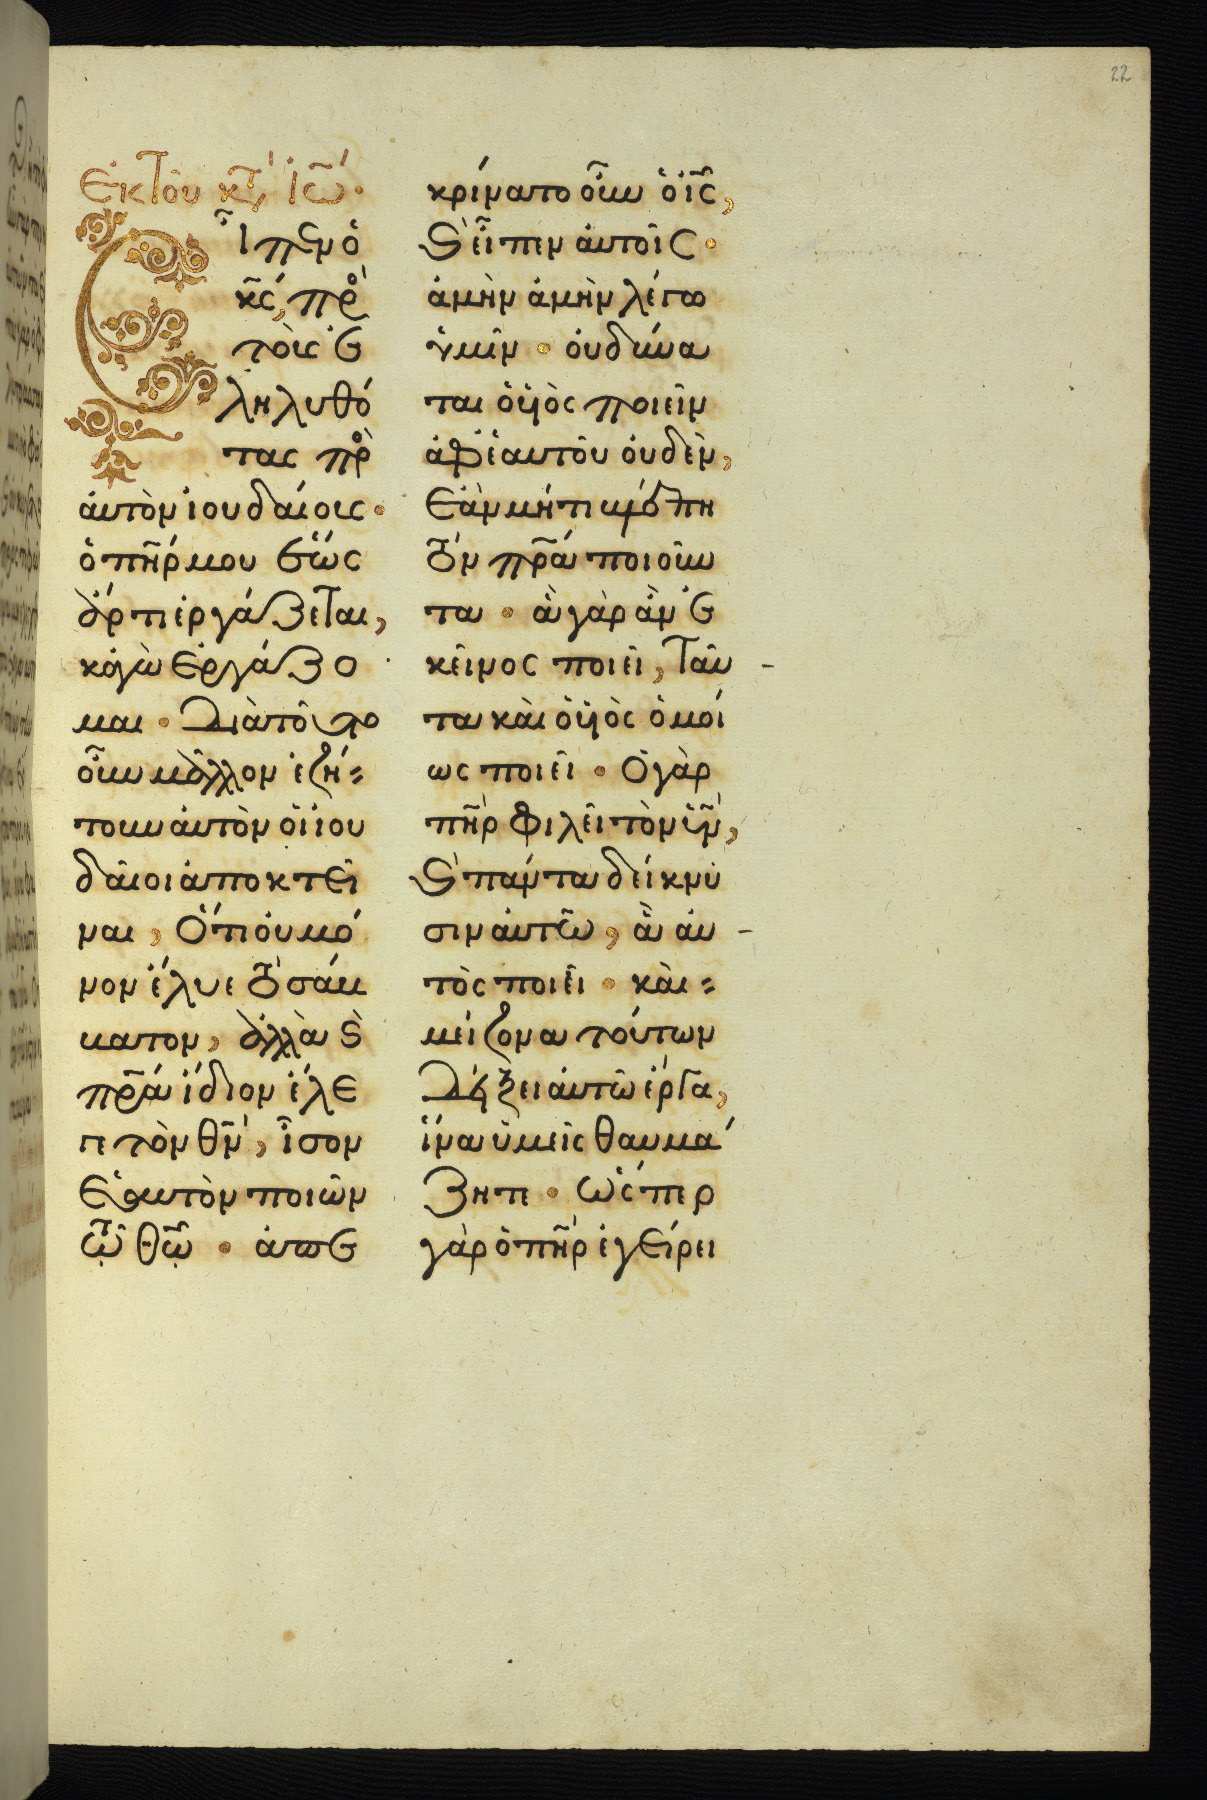 22
Ἐκ τοῦ κτ̅ Ἰω̅·
Εἶπεν ὁ
κ̅ς̅, πρὸ̣
τοὺς ἐ
ληλυθό
τας πρὸ̣
ἀυτὸν ἰουδαίους·
ὁ π̅η̅ρ μου ἕως
ἄρτι ἐργάζεται,
κἀγὼ ἐργάζο
μαι· Διὰ τοῦτο
οὖν μᾶλλον ἐζή=
τουν ἀυτὸν ὁι ἰου
δαῖοι ἀποκτεῖ
ναι, Ὅτι ὀυ μό
νον ἔλυε τὸ σάβ
βατον, ἀλλὰ ϗ
π̅ρ̅α ἴδιον ἔλε
γε τὸν θ̅ν̅, ἶσον
ἑαυτὸν ποιῶν
τῶ θ̅ῶ̅· ἀπε
κρίνατο οὖν ὁ ι̅ς̅,
ϗ εἶπεν ἀυτοῖς·
ἀμὴν ἀμὴν λέγω
ὑμῖν· ὀυ δύνα
ται ὁ ὑιὸς ποιεῖν
ἀφ' ἑαυτοῦ ὀυδὲν,
Ἐὰν μή τι βλέπη
τὸν π̅ρ̅α ποιοῦν
τα· ἃ γὰρ ἂν ἐ
κεῖνος ποιεῖ, ταῦ -
τα καὶ ὁ ὑιὸς ὁμοί
ως ποιεῖ· Ὁ γὰρ
π̅η̅ρ φιλεῖ τὸν υ̅ν̅,
ϗ πάντα δείκνυ
σιν ἀυτῶ, ἃ ἀυ -
τὸς ποιεῖ· καὶ=
μείζονα τούτων
Δείξει ἀυτῶ ἔργα,
ἵνα ὑμεῖς θαυμά
ζητε· Ὥσπερ
γὰρ ὁ π̅η̅ρ ἐγείρει